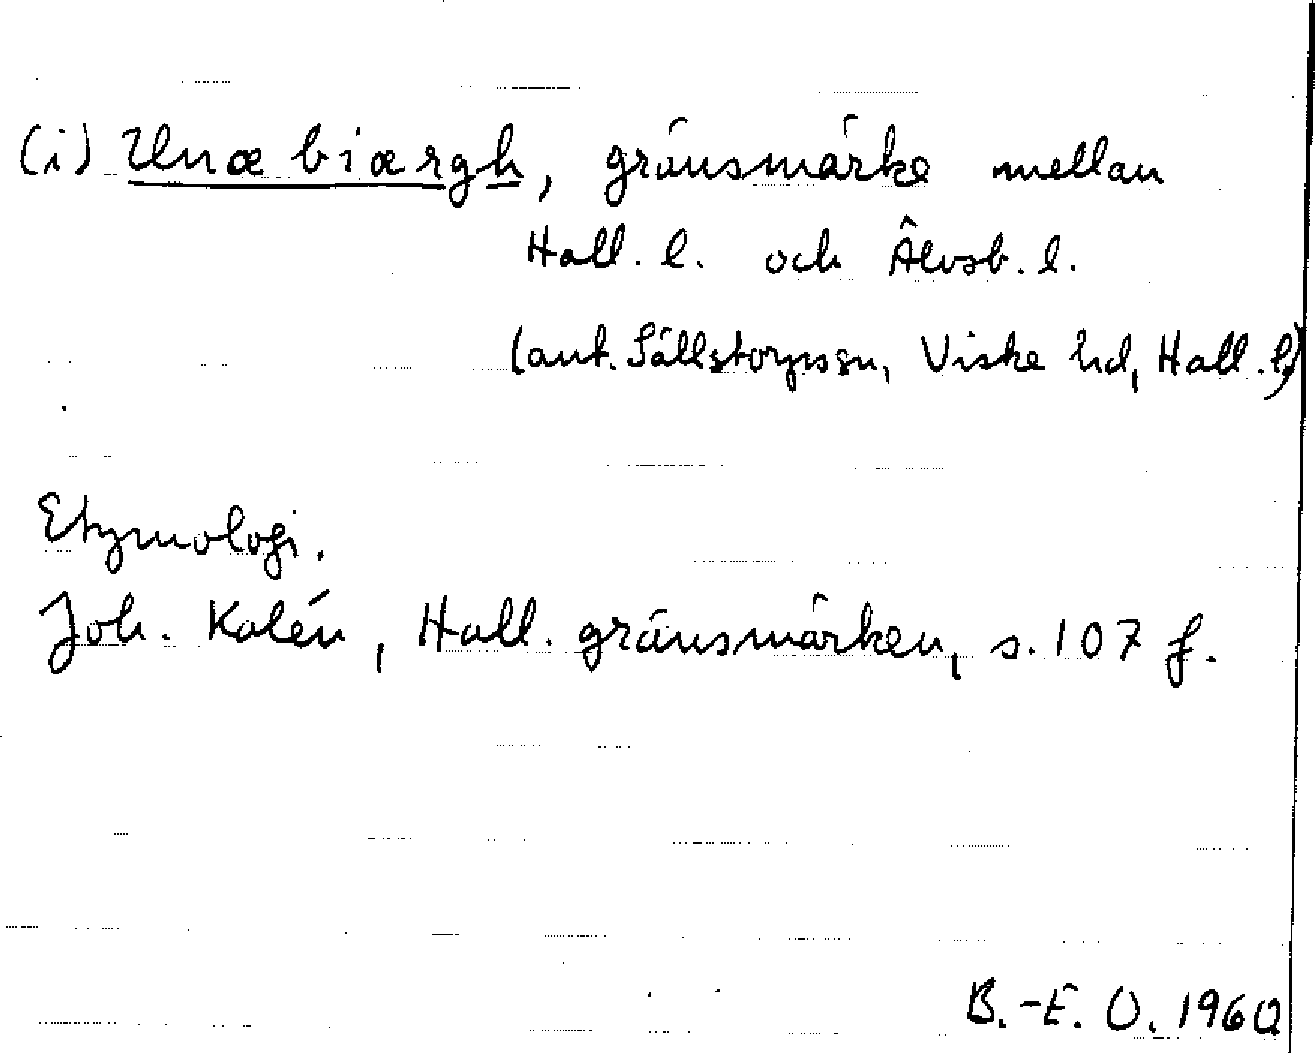 (i) Unæ biærgh, gränsmärke mellan
Hall. l. och Älvsb. l.
(ant. Sällstorpssn, Viske hd, Hall. l)
Etymologi.
Joh. Kalén, Hall. gränsmärken, s. 107 f.
B.-E. O. 1960